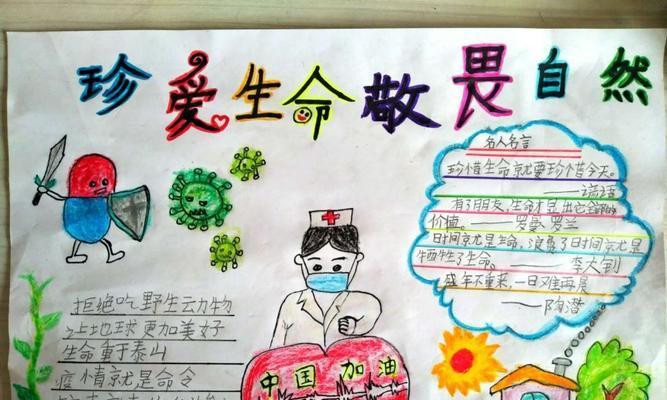 珍爱生命敬畏自然
名人名言
珍惜生命就要珍惜今天。
——谚语
有了朋友,生命才显出它全部的
价值。——罗曼 罗兰
时间就是生命,浪费了时间就是
牺牲了生命。——李大钊
盛年不重来,一日难再晨
——陶潜
拒绝吃野生动物
让地球更加美好
生命重于泰山
疫情就是命令
中国加油